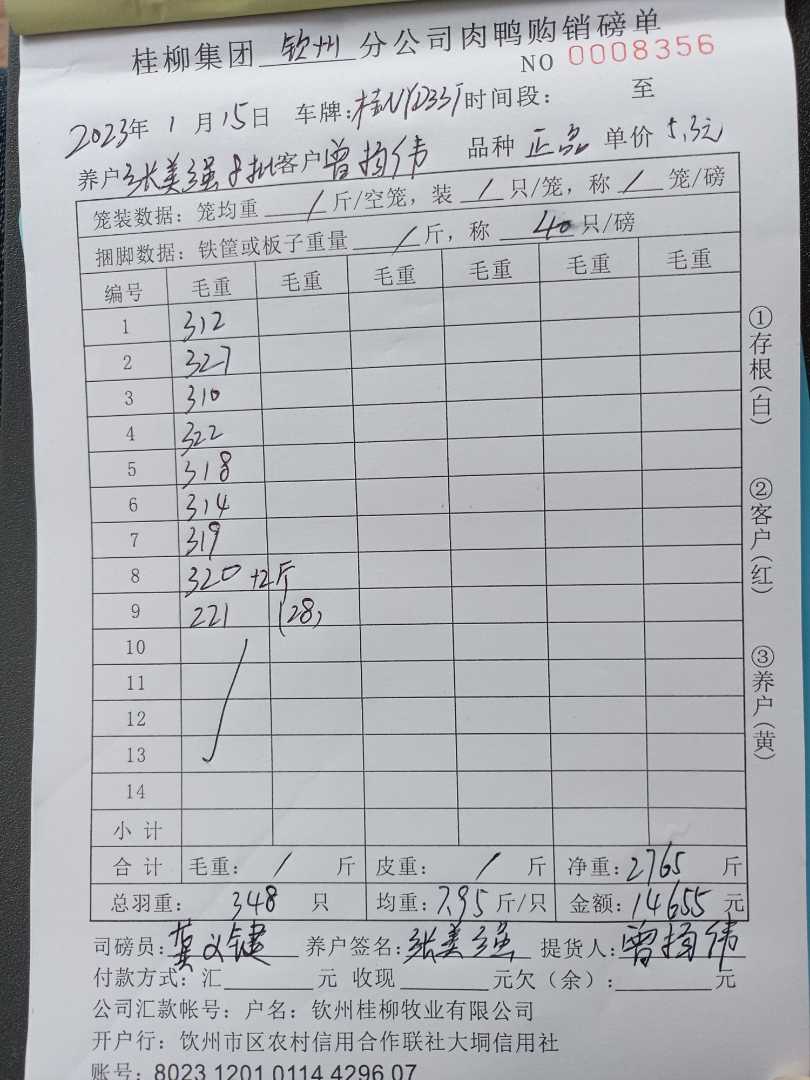 桂柳集团 钦州 分公司肉鸭购销磅单
NO 0008356
2023年 1 月 15日 车牌: 时间段: 至
养户 张美强 8批 客户 曾扬伟 品种 正品 单价 5.3元
笼装数据: 笼均重 / 斤/空笼, 装 / 只/笼, 称 / 笼/磅
捆脚数据: 铁筐或板子重量 / 斤, 称 40 只/磅
编号 毛重 毛重 毛重 毛重 毛重 毛重
1 312
2 327
3 310
4 322
5 318
6 314
7 319
8 320 +2斤
9 221 (28)
10
11
12
13
14
小 计
合 计 毛重: / 斤 皮重: / 斤 净重: 2765 斤
总羽重: 348 只 均重: 7.95 斤/只 金额: 14655 元
司磅员: 龚义键 养户签名: 张美强 提货人: 曾扬伟
付款方式: 汇 元 收现 元欠(余): 元
公司汇款帐号: 户名: 钦州桂柳牧业有限公司
开户行: 钦州市区农村信用合作联社大垌信用社
账号: 8023 1201 0114 4296 07
①存根(白)
②客户(红)
③养户(黄)